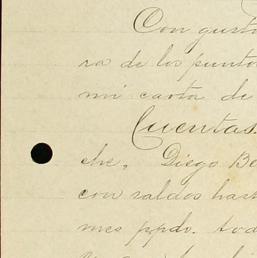 Con gusto
ra de los puntos
mi carta de
Cuentas.
che. Diego Be
con saldos hast
mes ppdo. tod